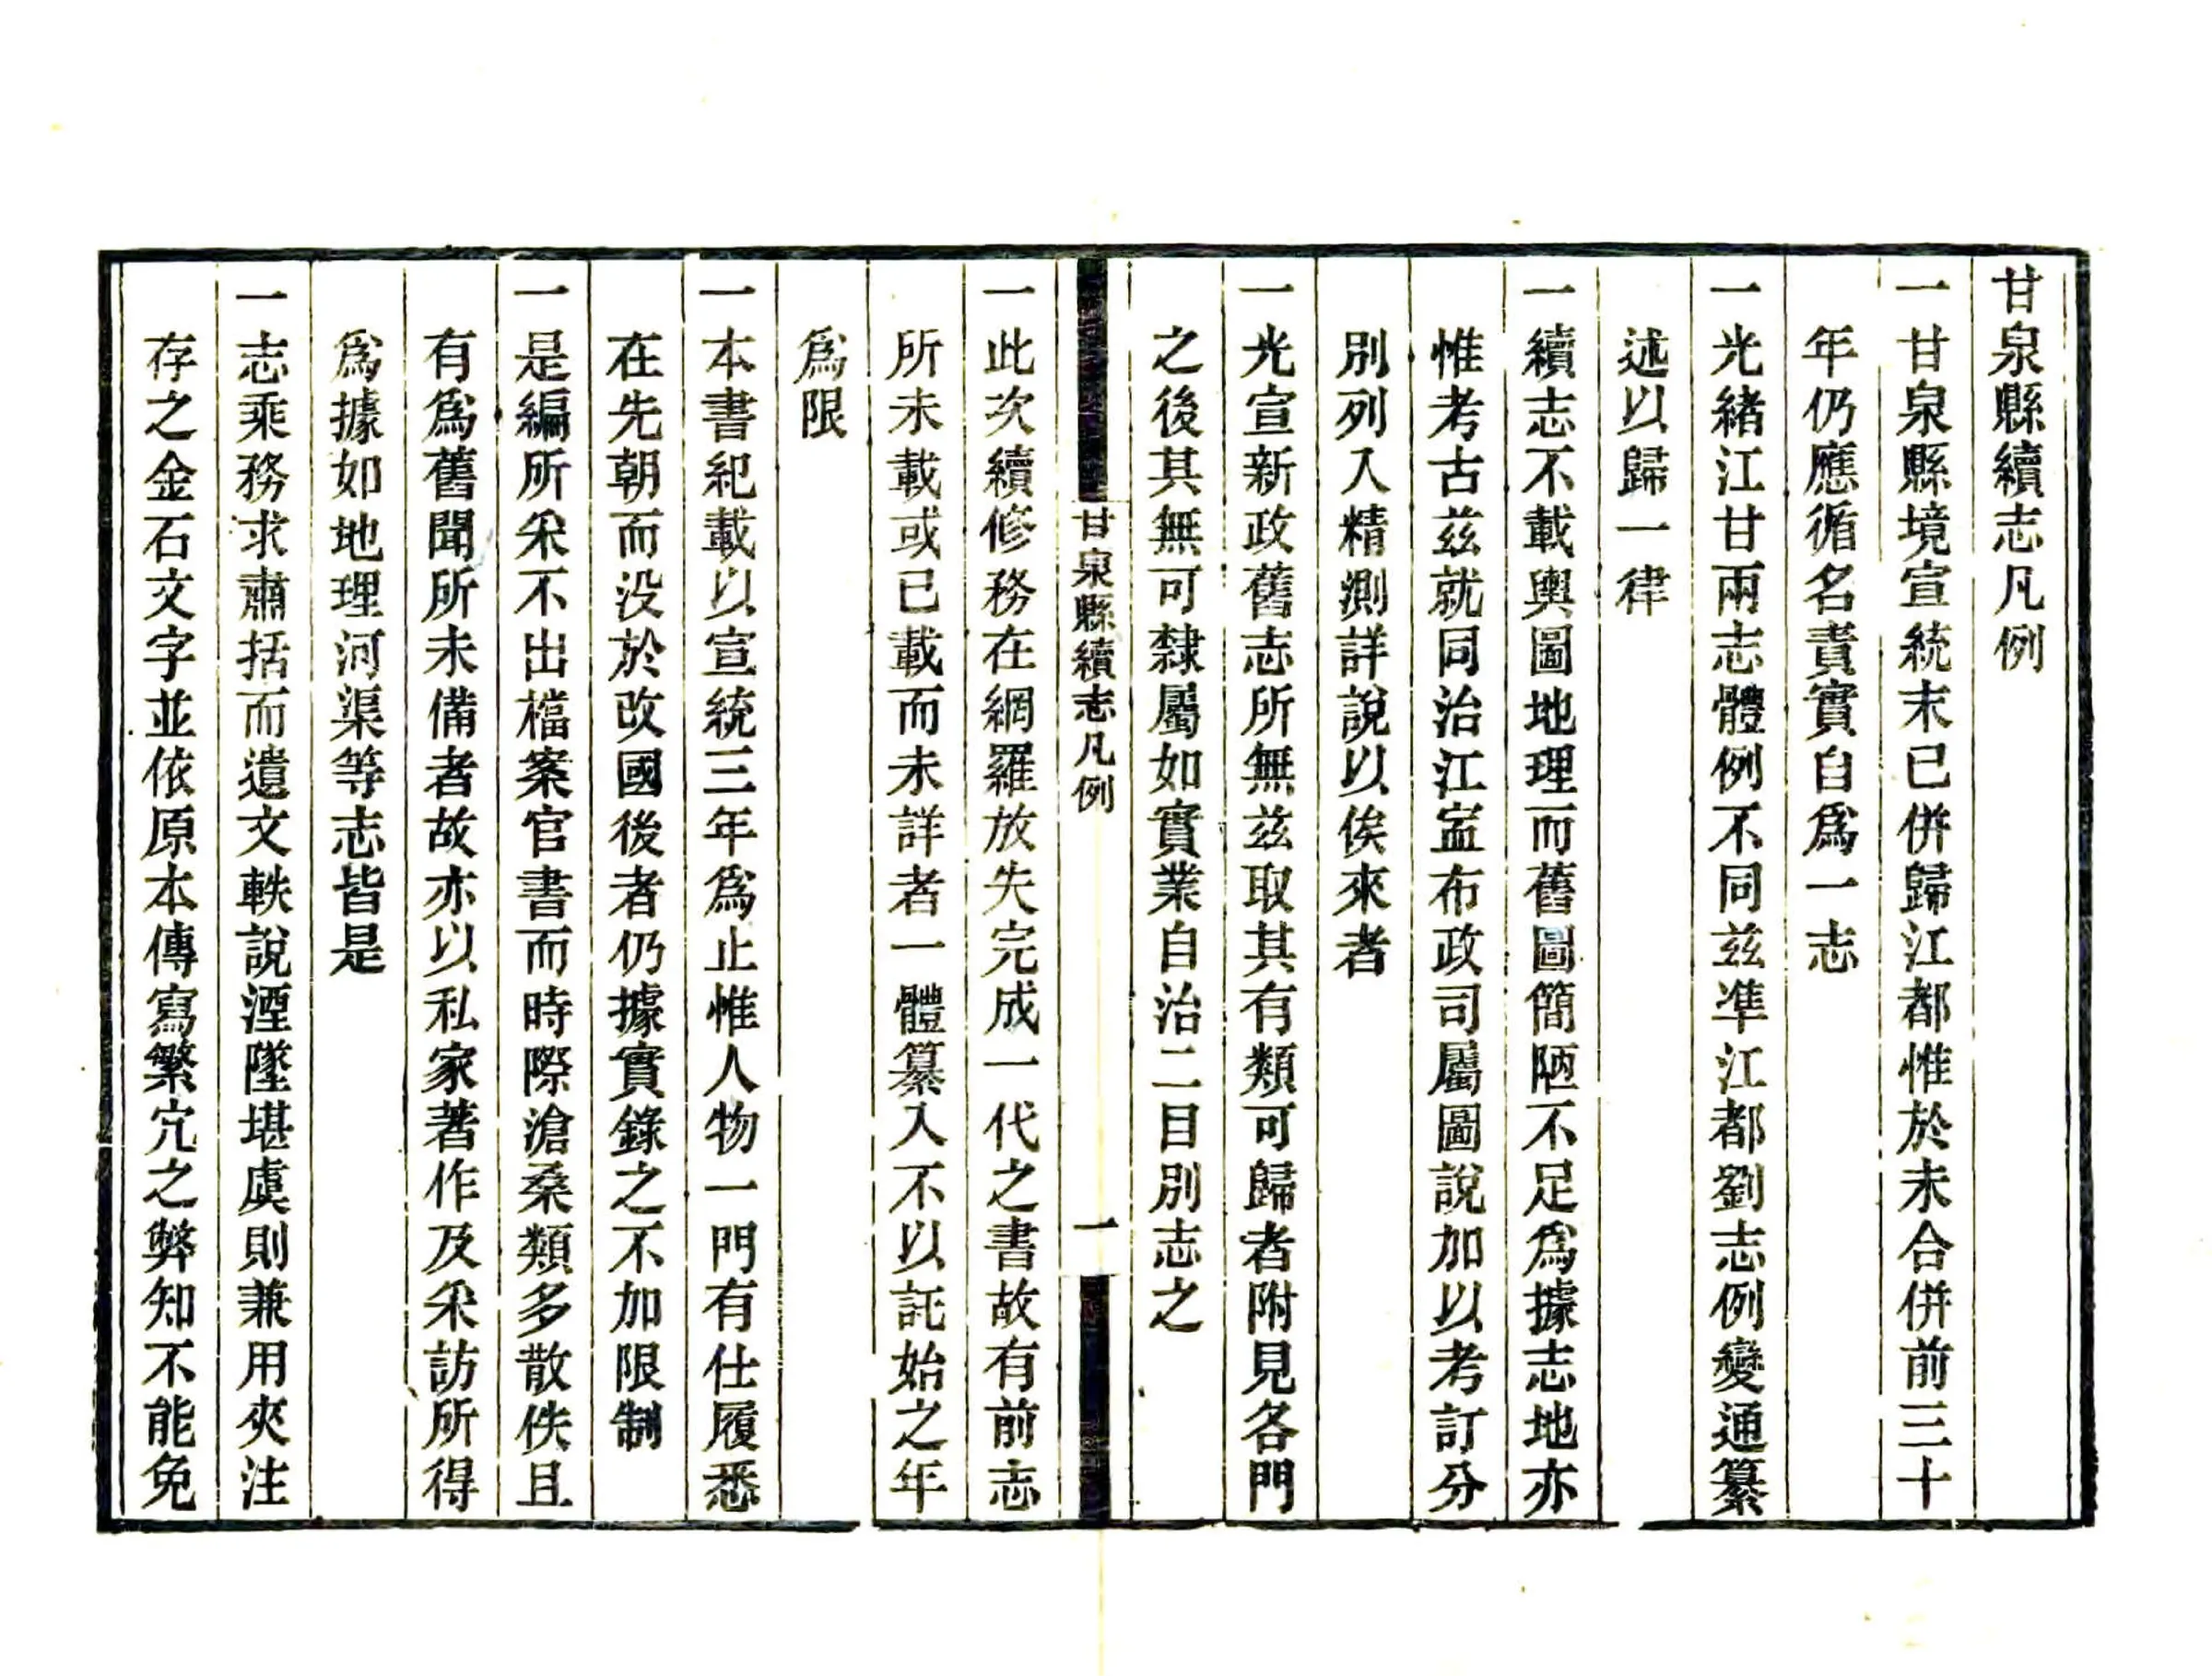 甘泉縣續志凡例
一甘泉縣境宣統末已併歸江都惟於未合併前三十
年仍應循名責實自爲一志
一光緒江甘兩志體例不同兹準江都劉志例變通纂
述以歸一律
一續志不載輿圖地理而舊圖簡陋不足爲據志地亦
惟考古兹就同治江寍布政司屬圖說加以考訂分
別列入精測詳說以俟來者
一光宣新政舊志所無兹取其有類可歸者附見各門
之後其無可隸屬如實業自治二目別志之
甘泉縣續志凡例
一
一此次續修務在網羅放失完成一代之書故有前志
所未載或已載而未詳者一體纂入不以託始之年
爲限
一本書紀載以宣統三年爲止惟人物一門有仕履悉
在先朝而没於改國後者仍據實錄之不加限制
一是編所采不出檔案官書而時際滄桑類多散佚且
有爲舊聞所未備者故亦以私家著作及采訪所得
爲據如地理河渠等志皆是
一志乘務求肅括而遺文軼說湮墜堪虞則兼用夾注
存之金石文字並依原本傳寫繁冗之弊知不能免